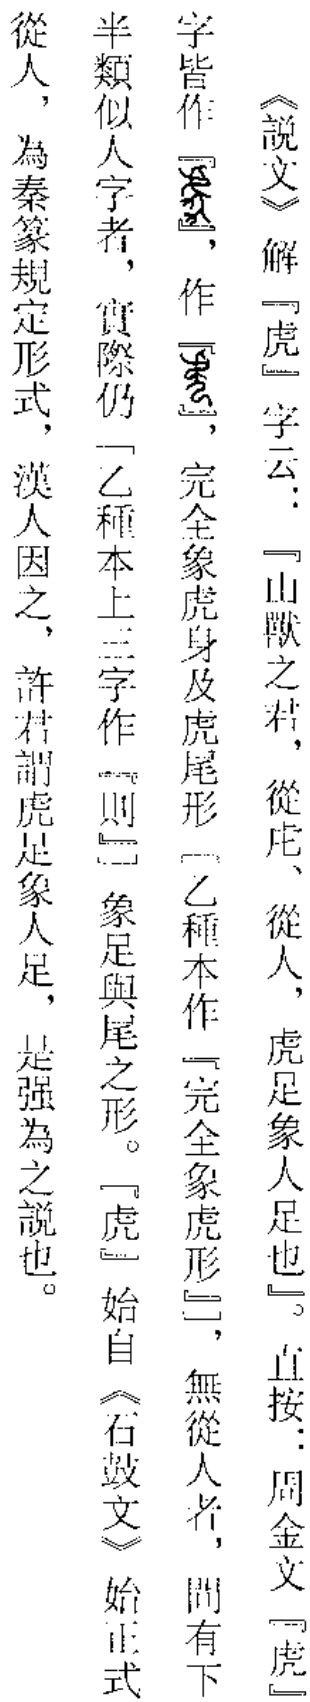 《説文》解『虎』字云:『山獸之君,從虍、從人,虎足象人足也』。直按:周金文『虎』
字皆作『』,作『』,完全象虎身及虎尾形〔乙種本作『完全象虎形』〕,無從人者,間有下
半類似人字者,實際仍〔乙種本上三字作『則』〕象足與尾之形。『虎』始自《石鼓文》始正式
從人,為秦篆規定形式,漢人因之,許君謂虎足象人足,是强為之説也。